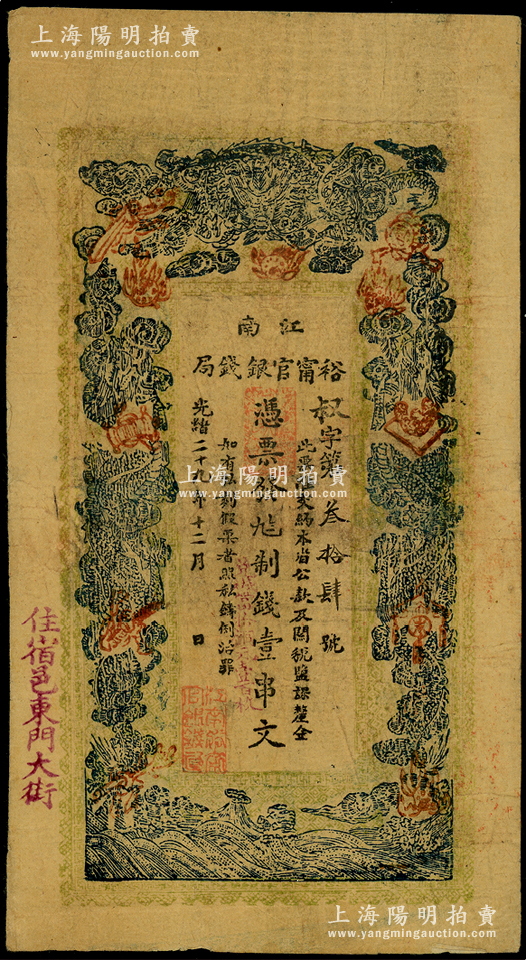 上海陽明拍賣
www.yangmingauction.com
江南
裕甯官銀錢局
叔字第叁拾肆號
完納本省公款及關稅鹽課釐金
憑票發九八制錢壹串文
如有私刻假票者照私鑄例治罪
光緒二十九年十二月 日
住宿邑東門大街
上海陽明拍賣
www.yangmingauction.com
上海陽明拍賣
www.yangmingauction.com